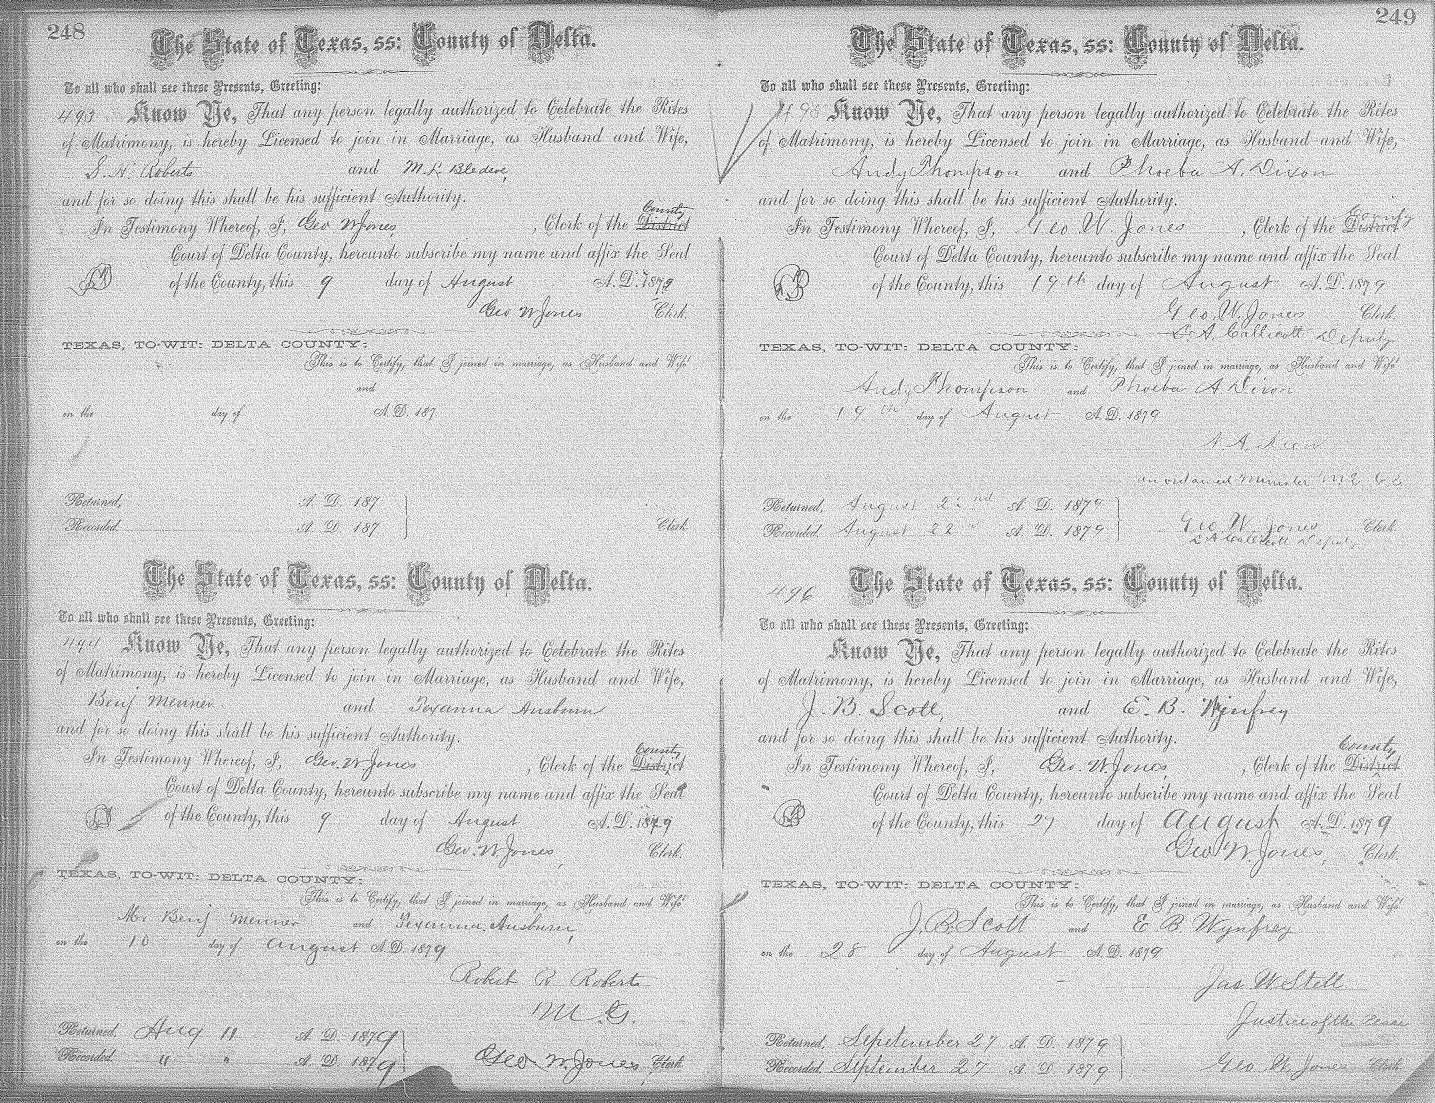 248
The State of Texas, ss: County of Delta.
To all who shall see these Presents, Greeting:
493 Know Ye, That any person legally authorized to Celebrate the Rites
of Matrimony, is hereby Licensed to join in Marriage, as Husband and Wife,
S. H. Roberts and M. L. Bledsoe,
and for so doing this shall be his sufficient Authority.
County
In Testimony Whereof, I, Geo W Jones, Clerk of the District
Court of Delta County, hereunto subscribe my name and affix the Seal
of the County, this 9 day of August A. D. 1879
Geo W Jones Clerk.
TEXAS, TO-WIT: DELTA COUNTY:
This is to Certify, that I joined in marriage, as Husband and Wife
and
on the day of A. D. 187
Returned, A. D. 187
Recorded A. D. 187 Clerk
The State of Texas, ss: County of Delta.
To all who shall see these Presents, Greeting:
494 Know Ye, That any person legally authorized to Celebrate the Rites
of Matrimony, is hereby Licensed to join in Marriage, as Husband and Wife,
Benj Menner and Texanna Ausburn
and for so doing this shall be his sufficient Authority.
County
In Testimony Whereof, I, Geo. W Jones, Clerk of the District
Court of Delta County, hereunto subscribe my name and affix the Seal
of the County, this 9 day of August A. D. 1879
Geo. W. Jones, Clerk.
TEXAS, TO-WIT: DELTA COUNTY:
This is to Certify, that I joined in marriage, as Husband and Wife
Mr Benj Menner and Texanna Ausburn,
on the 10 day of August A. D. 1879
Robert R Roberts
M. G.
Returned, Aug 11 A. D. 1879
Recorded " " A. D. 1879 Geo. W. Jones, Clerk
249
The State of Texas, ss: County of Delta.
To all who shall see these Presents, Greeting:
495 Know Ye, That any person legally authorized to Celebrate the Rites
of Matrimony, is hereby Licensed to join in Marriage, as Husband and Wife,
Andy Thompson and Phoeba A. Dixon
and for so doing this shall be his sufficient Authority.
County
In Testimony Whereof, I, Geo. W. Jones, Clerk of the District
Court of Delta County, hereunto subscribe my name and affix the Seal
of the County, this 19th day of August A. D. 1879
Geo. W. Jones Clerk.
L. A. Callicott Deputy
TEXAS, TO-WIT: DELTA COUNTY:
This is to Certify, that I joined in marriage, as Husband and Wife
Andy Thompson and Phoeba A. Dixon
on the 19th day of August A. D. 1879
an ordained Minister M E
Returned, August 22nd A. D. 1879
Recorded August 22nd A. D. 1879 Geo W. Jones Clerk
L A Callicott Deputy
496 The State of Texas, ss: County of Delta.
To all who shall see these Presents, Greeting:
Know Ye, That any person legally authorized to Celebrate the Rites
of Matrimony, is hereby Licensed to join in Marriage, as Husband and Wife,
J. B. Scott, and E. B. Wynfrey
and for so doing this shall be his sufficient Authority.
County
In Testimony Whereof, I, Geo. W. Jones, Clerk of the District
Court of Delta County, hereunto subscribe my name and affix the Seal
of the County, this 27 day of August A. D. 1879
Geo W. Jones, Clerk.
TEXAS, TO-WIT: DELTA COUNTY:
This is to Certify, that I joined in marriage, as Husband and Wife
J. B. Scott and E B Wynfrey
on the 28 day of August A. D. 1879
Jas W Stell
Justice of the Peace
Returned, Sepetember 27 A. D. 1879
Recorded September 27 A. D. 1879 Geo W Jones Clerk